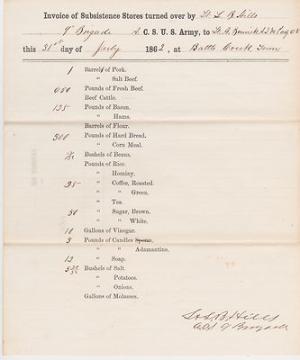 Invoice of Subsistence Stores turned over by Lt. L B Hills
9" Brigade A. C. S. U. S. Army, to Lt. A.
this 31st day of July 1862, at Battle Creek Tenn
1 Barrels of Pork.
" Salt Beef.
600 Pounds of Fresh Beef.
Beef Cattle.
135 Pounds of Bacon.
" Hams.
Barrels of Flour.
300 Pounds of Hard Bread.
" Corn Meal.
Bushels of Beans.
Pounds of Rice.
" Hominy.
25 " Coffee, Roasted.
" " Green.
" Tea.
50 " Sugar, Brown.
" " White.
10 Gallons of Vinegar.
3 Pounds of Candles
" " Adamantine.
12 " Soap.
Bushels of Salt.
" Potatoes.
" Onions.
Gallons of Molasses.
L B Hills
ACS 9 Brigade